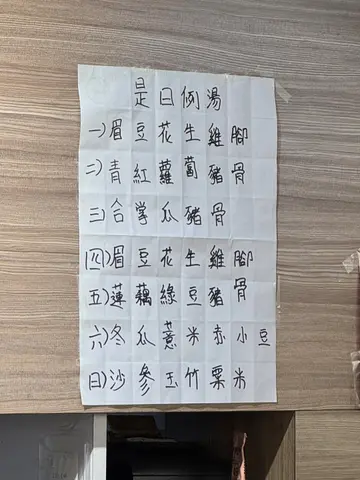 是日例湯
一)眉豆花生雞腳
二)青紅蘿蔔豬骨
三)合掌瓜豬骨
四)眉豆花生雞腳
五)蓮藕綠豆豬骨
六)冬瓜薏米赤小豆
日)沙參玉竹粟米